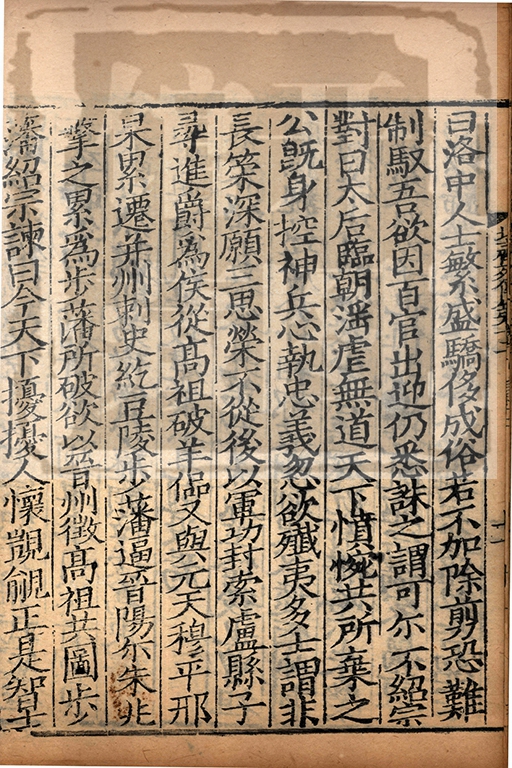 曰洛中人士繁盛驕侈成俗若不加除剪恐難
制馭吾欲因百官出迎仍悉誅之謂可尒不紹宗
對曰太后臨朝淫虐無道天下憤惋共所棄之
公旣身控神兵心執忠義忽欲殲夷多士謂非
長策深願三思榮不從後以軍功封索盧縣子
尋進爵爲侯從高祖破羊侃又與元天穆平邢
杲累遷并州刺史紇豆陵步藩逼晉陽尒朱兆
擊之累爲步藩所破欲以晉州徵高祖共圖步
藩紹宗諫曰今天下擾擾人懷覬覦正是智士